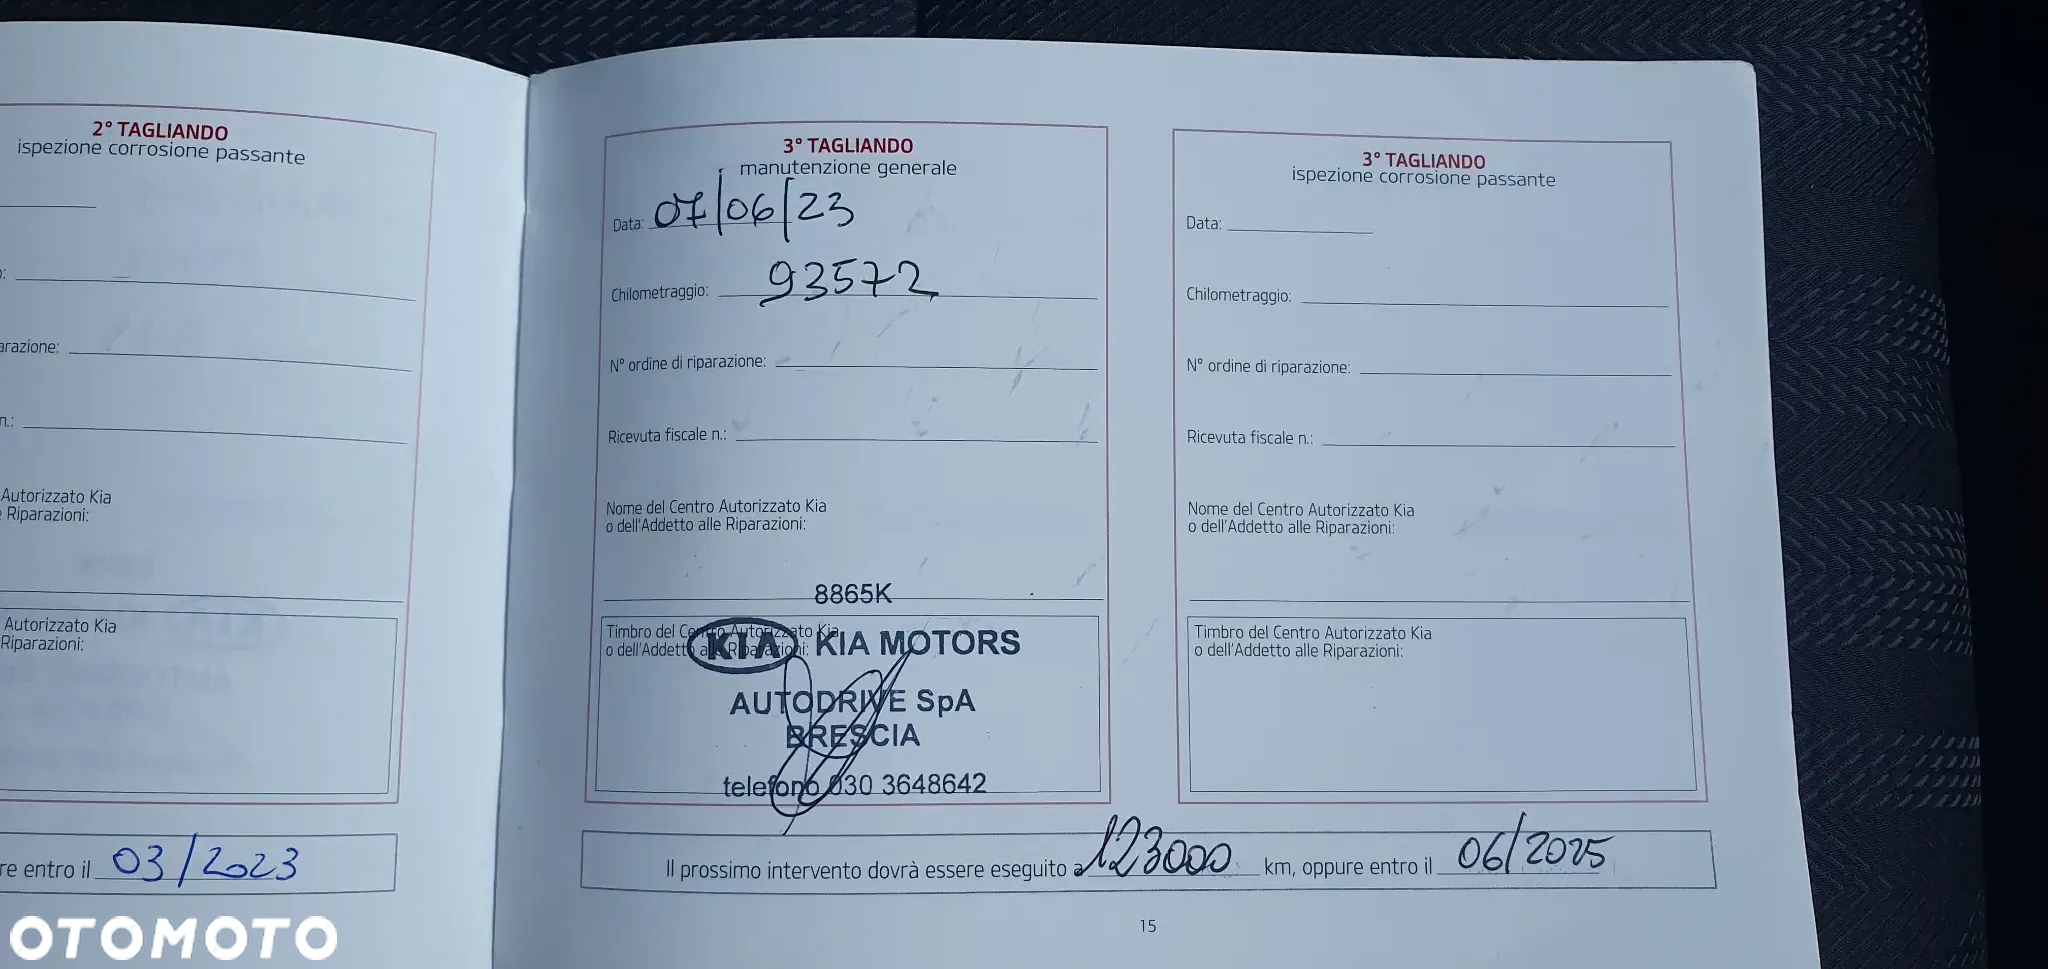 2° TAGLIANDO
ispezione corrosione passante
arazione:
n.:
Autorizzato Kia
e Riparazioni:
Autorizzato Kia
Riparazioni:
re entro il 03/2023
3° TAGLIANDO
manutenzione generale
Data: 07/06/23
Chilometraggio: 93572
N° ordine di riparazione:
Ricevuta fiscale n.:
Nome del Centro Autorizzato Kia
o dell'Addetto alle Riparazioni:
8865K
Timbro del Centro Autorizzato Kia
o dell'Addetto alle Riparazioni:
KIA KIA MOTORS
AUTODRIVE SpA
BRESCIA
telefono 030 3648642
3° TAGLIANDO
ispezione corrosione passante
Data:
Chilometraggio:
N° ordine di riparazione:
Ricevuta fiscale n.:
Nome del Centro Autorizzato Kia
o dell'Addetto alle Riparazioni:
Timbro del Centro Autorizzato Kia
o dell'Addetto alle Riparazioni:
Il prossimo intervento dovrà essere eseguito a 123000 km, oppure entro il 06/2025
15
OTOMOTO